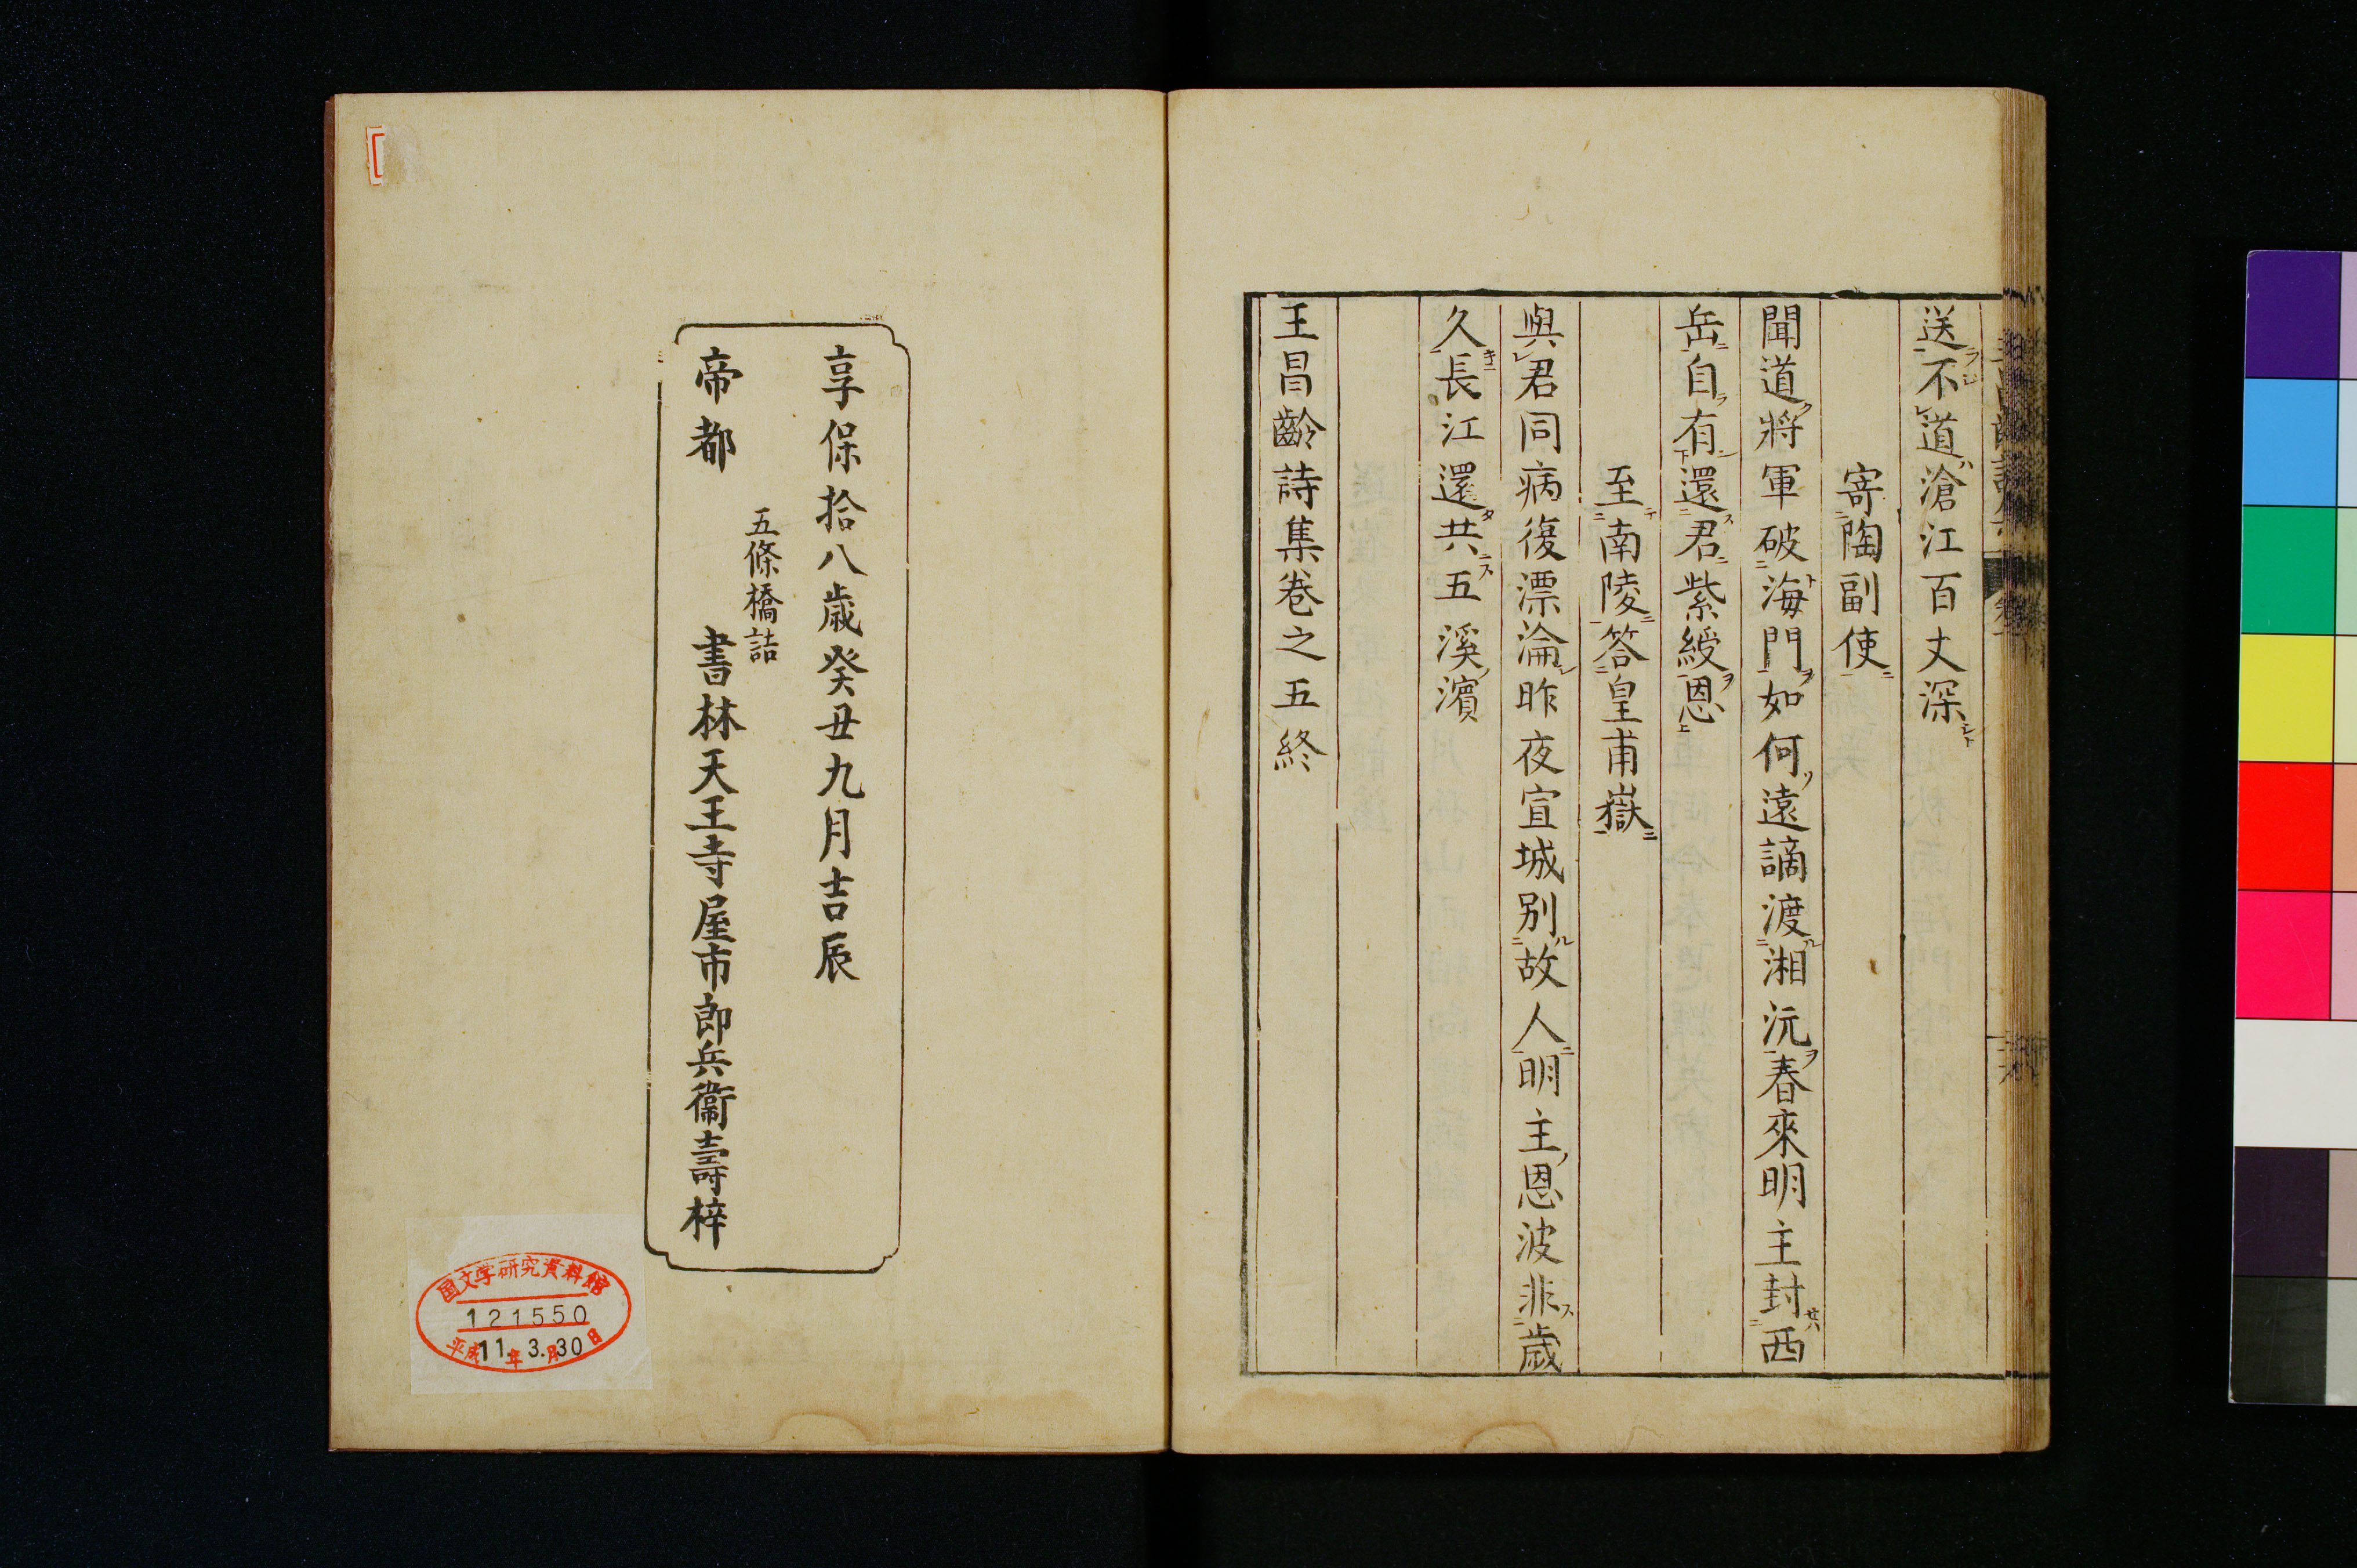 送不道滄江百丈深
寄陶副使
聞道將軍破海門如何遠謫渡湘沅春來明主封西
岳自有還君紫綬恩
至南陵答皇甫嶽
與君同病復漂淪昨夜宣城別故人明主恩波非歲
久長江還共五溪濱
王昌齡詩集卷之五終
享保拾八歳癸丑九月吉辰
五條橋詰
帝都 書林天王寺屋市郎兵衞壽梓
国文学研究資料館
121550
平成11年3月30日